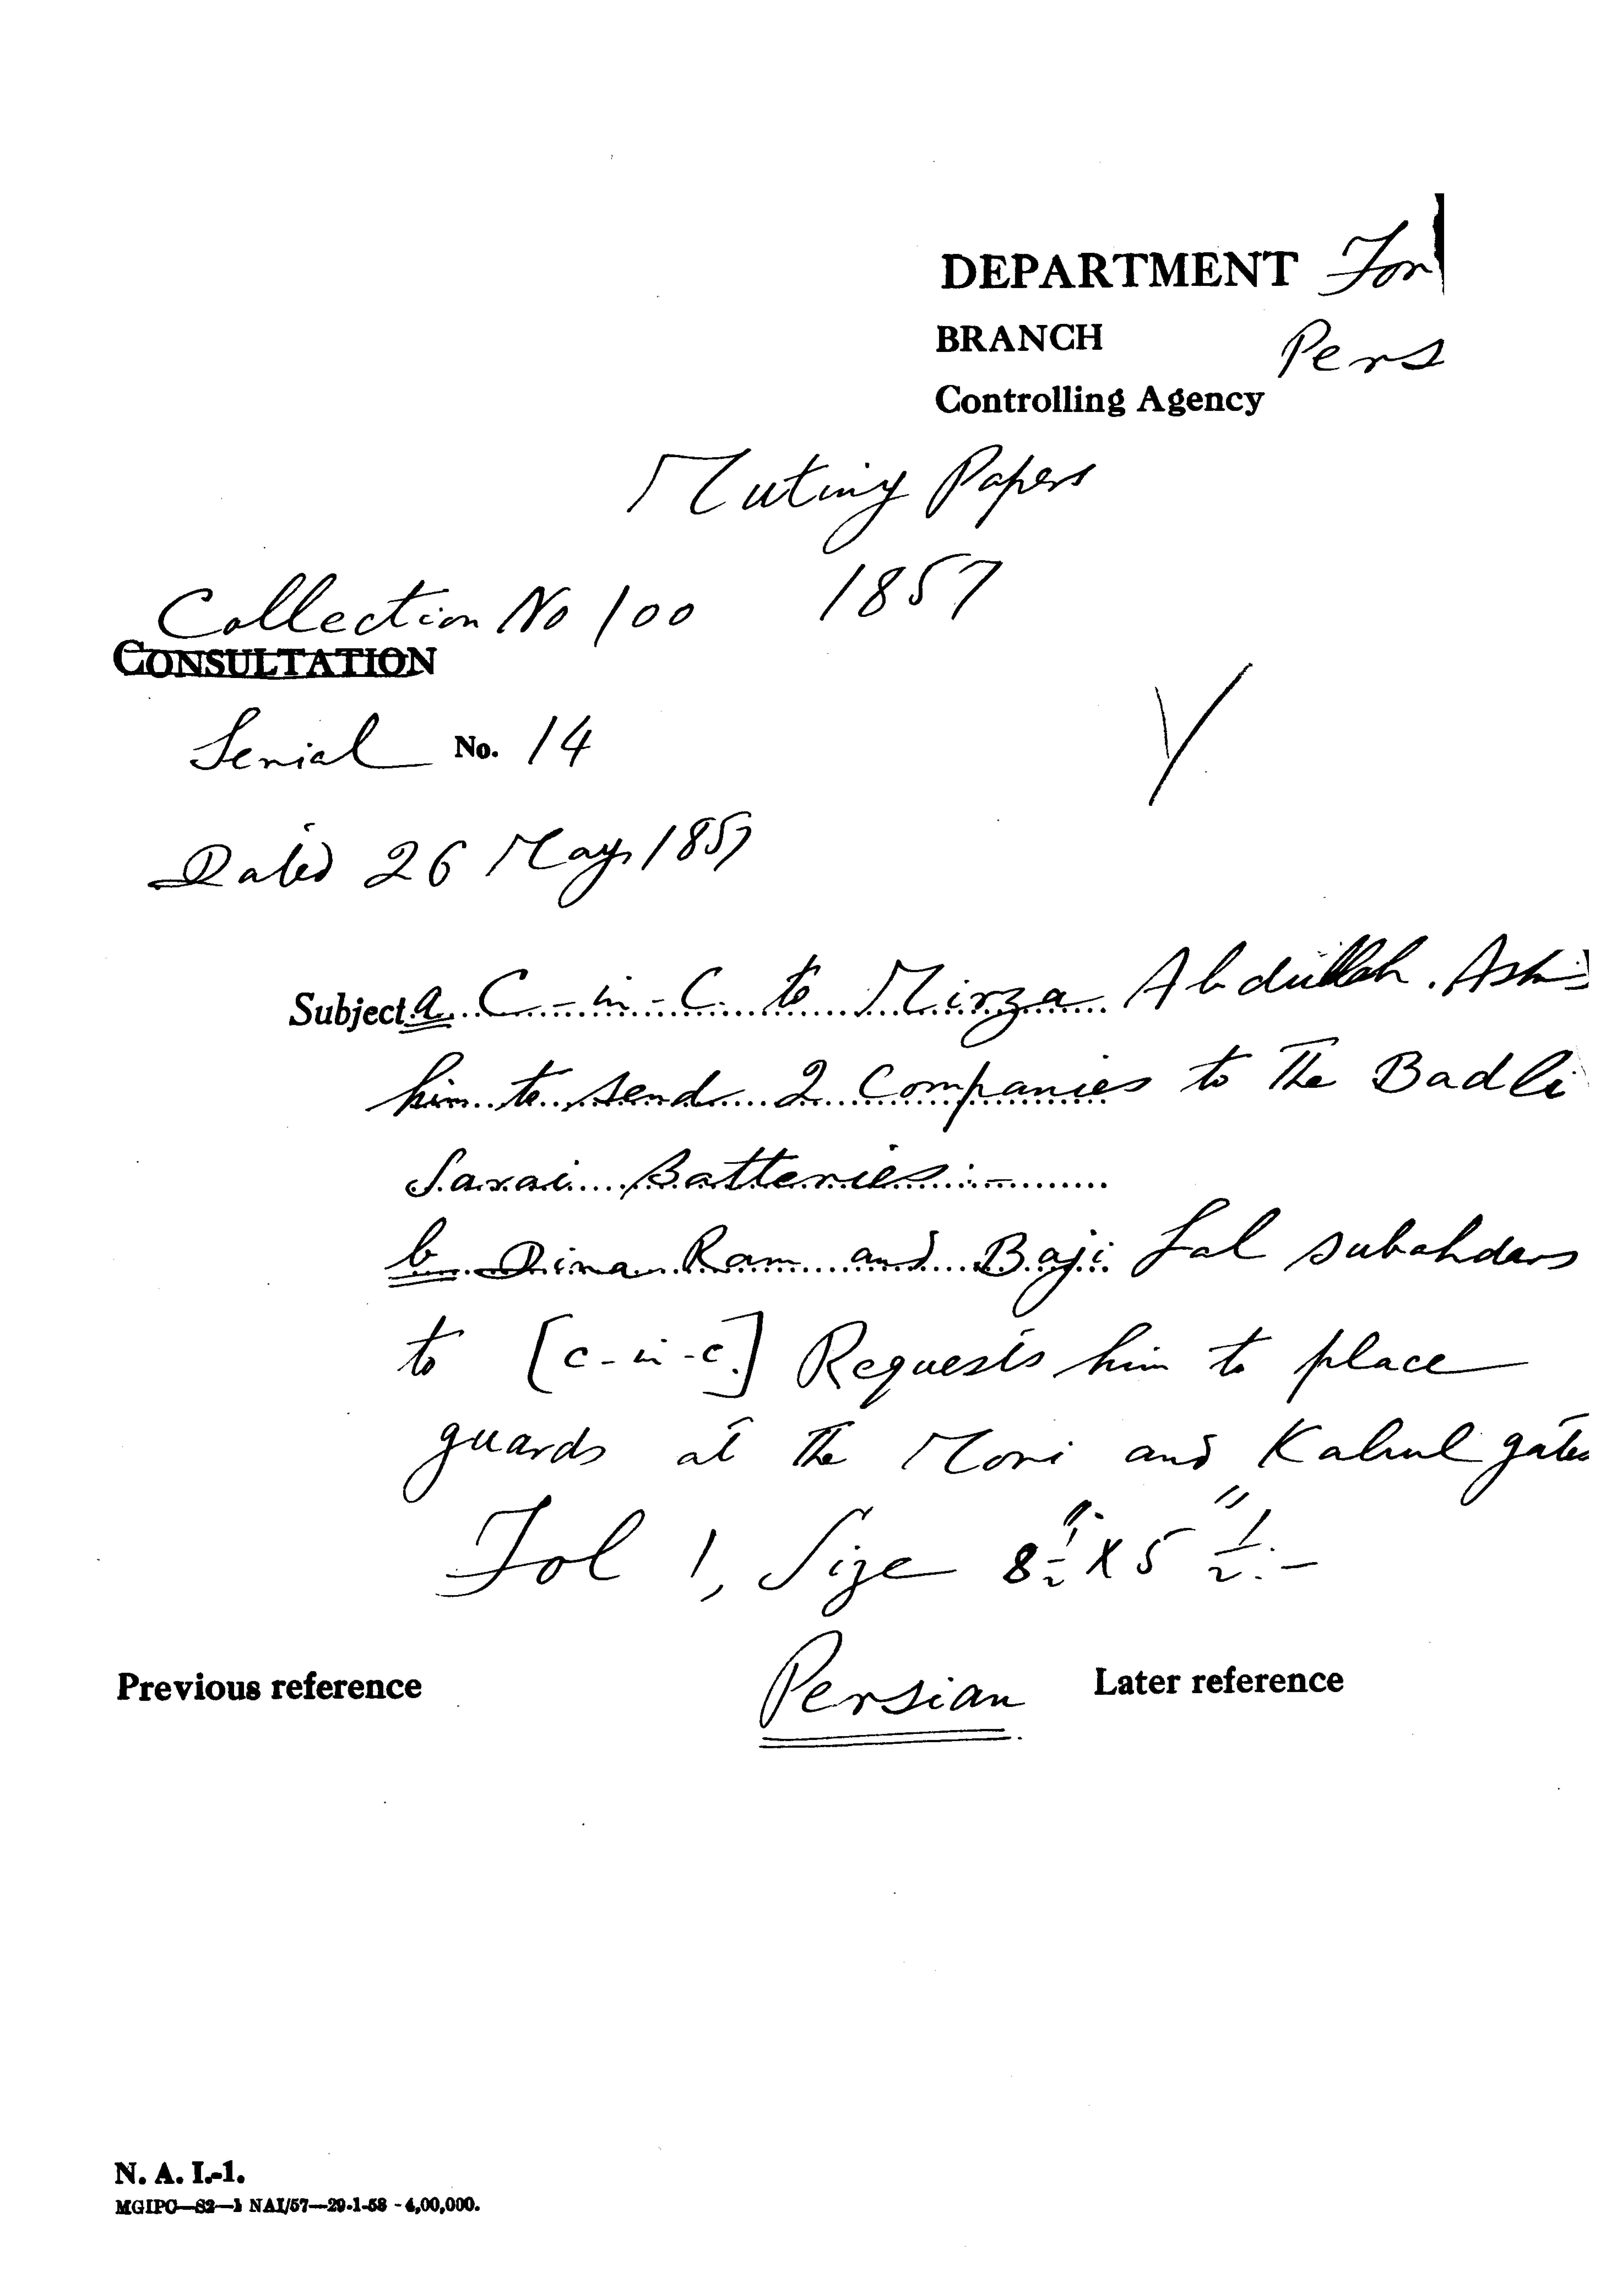 DEPARTMENT For
BRANCH Pers
Controlling Agency
Mutiny Papers
Collection No 100 1857
CONSULTATION
Serial No. 14
Dated 26 May 1857
Subject a C-in-C. to Mirza Abdullah. Ask
him to send 2 Companies to the Badli
Sarai Batteries:-
b Dina Ram and Baji Lal subahdars
to [C-in-C.] Requests him to place
guards at the Mori and Kabul gates
Fol 1, Size 8½" X 5½":-
Previous reference Persian Later reference
N. A. I.-1.
MGIPC—S2—1 NAI/57—29-1-58 - 4,00,000.